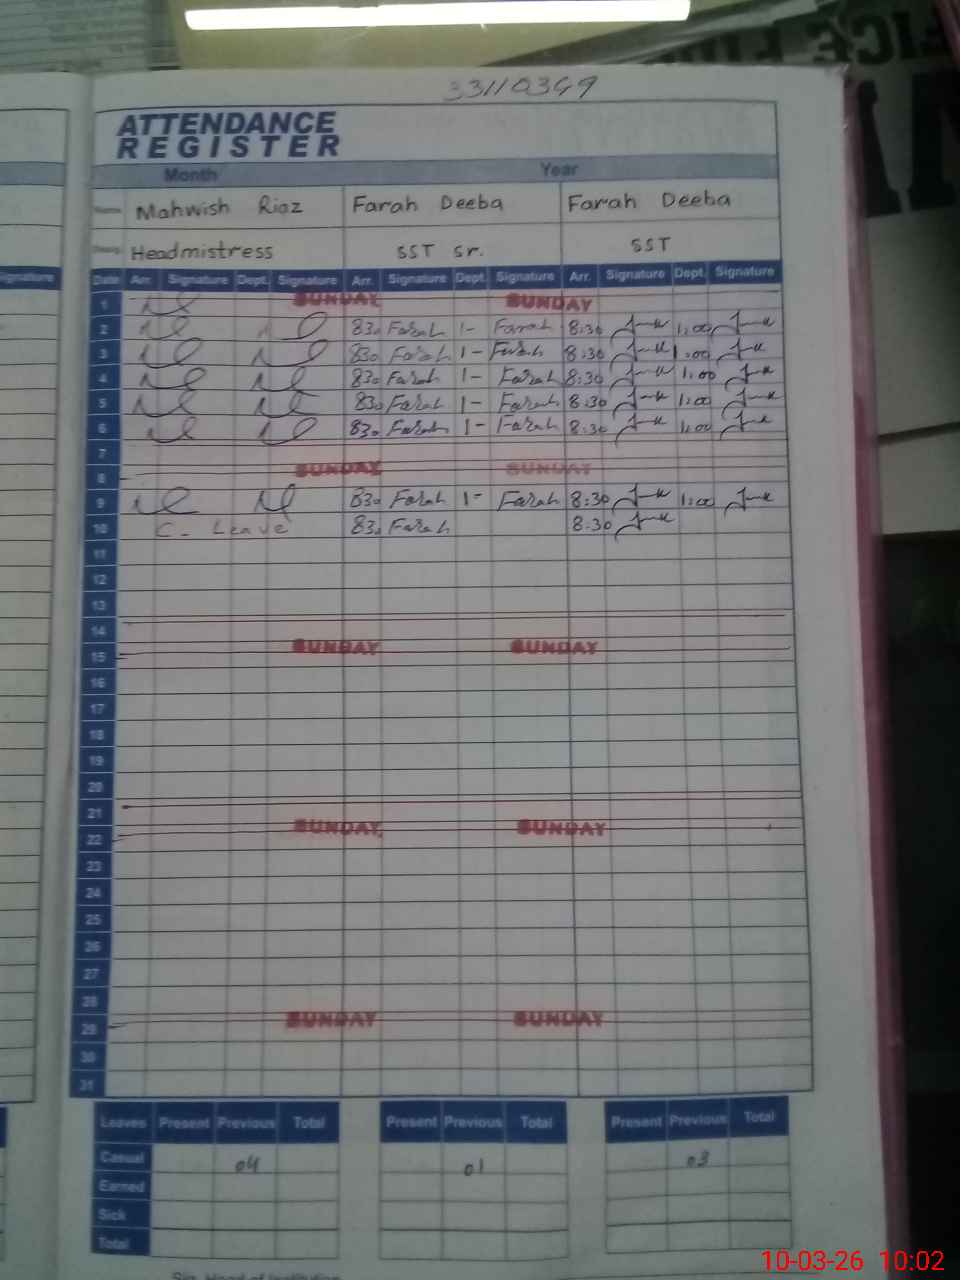 33110349
ATTENDANCE
REGISTER
Month Year
Name Mahwish Riaz Farah Deeba Farah Deeba
Desig. Headmistress SST Sr. SST
ignature Date Arr. Signature Dept. Signature Arr. Signature Dept. Signature Arr. Signature Dept. Signature
1 SUNDAY SUNDAY
2 830 Farah 1- Farah 8:30 1:00
3 830 Farah 1- Farah 8:30 1:00
4 830 Farah 1- Farah 8:30 1:00
5 830 Farah 1- Farah 8:30 1:00
6 830 Farah 1- Farah 8:30 1:00
7
SUNDAY SUNDAY
8
9 830 Farah 1- Farah 8:30 1:00
10 C. Leave 830 Farah 8:30
11
12
13
14
SUNDAY SUNDAY
15
16
17
18
19
20
21
SUNDAY SUNDAY
22
23
24
25
26
27
28
SUNDAY SUNDAY
29
30
31
Leaves Present Previous Total Present Previous Total Present Previous Total
Casual 04 01 03
Earned
Sick
Total
Sig. Head of Institution
10-03-26 10:02